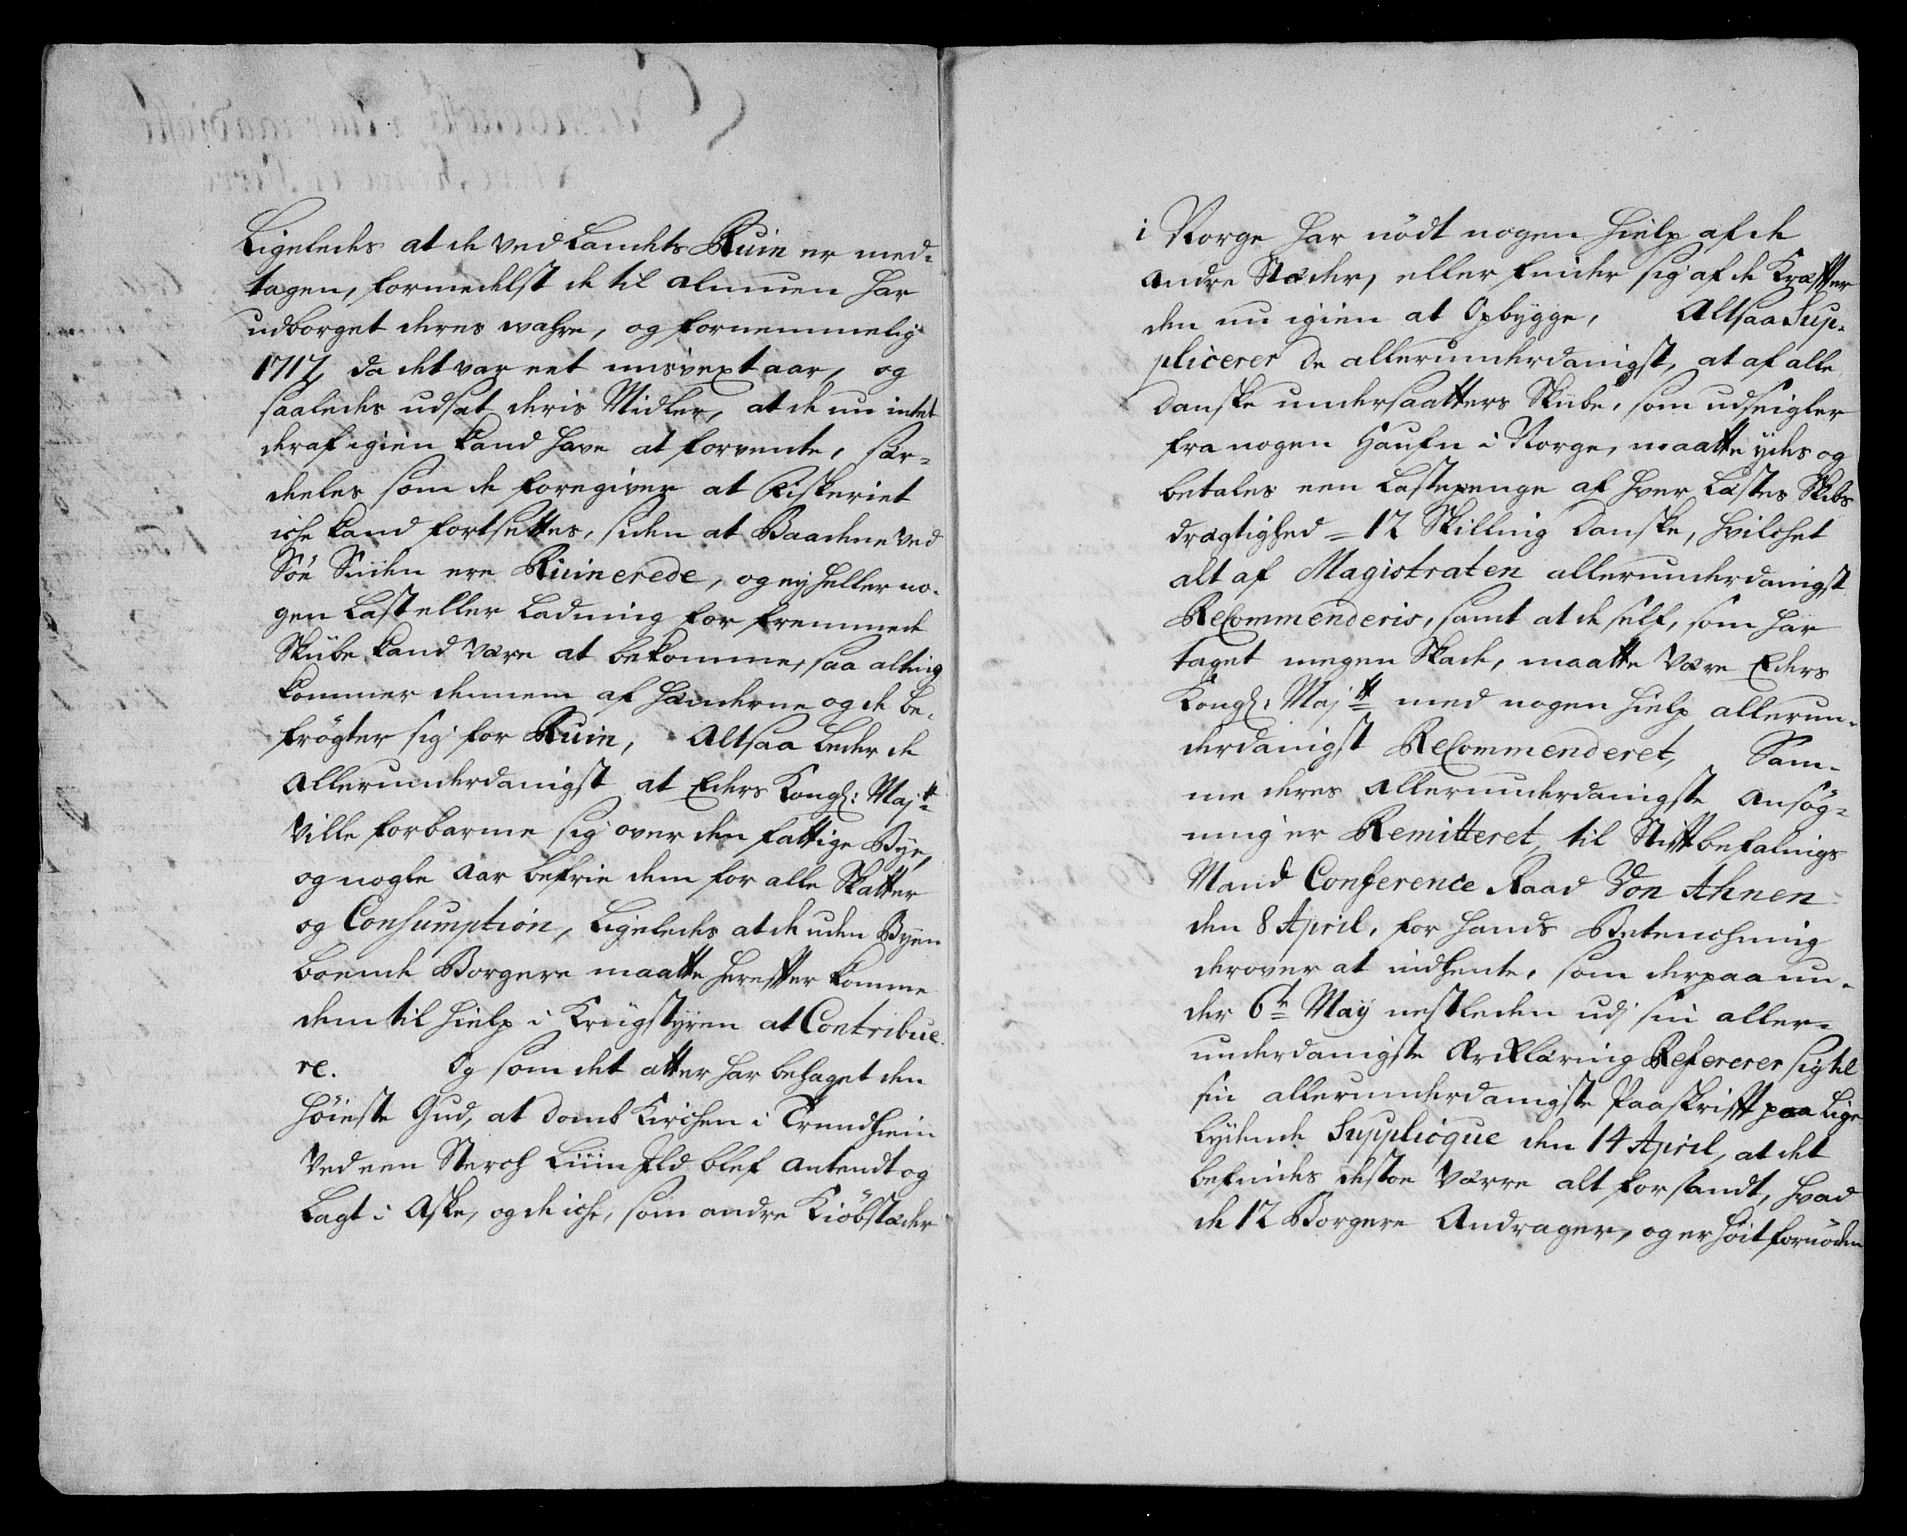 Ligeledes at de ved Landets Ruin er med-
tagen, formedelst de til almuen har
udborget deres wahre, og fornemmelig
1717, da det var eet misvext aar, og
saaledes udsat deris Midler, at de nu intet
deraf igien kand have at forvente, sær-
deeles som de foregiver at Fiskeriet
iche kand fortsettes, siden at Baadene ved
Söe Siiden ere Ruinerede, og ey heller no-
gen Last eller Ladning for fremmede
Skiibe kand være at bekomme, saa alting
kommer dennem af Hænderne og de be-
frögter sig for Ruin, Altsaa beder de
allerunderdanigst at Eders Kongl: Maj:tt
ville forbarme sig over den fattige Bye,
og nogle aar befrie dem for alle Skatter
og Consumption, Ligeledes at de uden Byen
boende Borgere maatte herefter komme
dem til hielp i Krigstyren at Contribue-
re. Og som det atter har behaget den
höieste Gud, at Domb Kirchen i Trundhiem
ved een Sterch Liün Ild blef antendt og
Lagt i Aske, og de iche, som andre Kiöbstæder
i Norge har nödt nogen hielp af de
andre Stæder, eller finder sig af de Kræffter
den nu igien at Opbygge, Altsaa Sup-
plicerer de allerunderdanigst, at af alle
danske undersaatters Skibe, som udseigler
fra nogen Haufn i Norge, maatte ydes og
betales een Lastepenge af hver Læstes Skibs
drægtighed = 12 Skilling Danske, hvilchet
alt af Magistraten allerunderdanigst
ReCommenderis, samt at de self, som har
taget megen Skade, maatte være Eders
Kongl: Maj:tt med nogen hielp allerun-
derdanigst ReCommenderet, Sam-
me deres allerunderdanigste Ansög-
ning er Remitteret til Stiftbefalings
Mand Conference Raad Von Ahnen
den 8 April, for hands Betenchning
derover at indhente, som derpaa un-
der 6te May nestleden udj sin aller-
underdanigste Erklæring Refererer sig til
sin allerunderdanigste Paaskrifft paa lige
lydende Supplicque den 14 April, at det
befindes desto værre alt for sandt, hvad
de 12 Borgere Andrager, og er höit fornöden